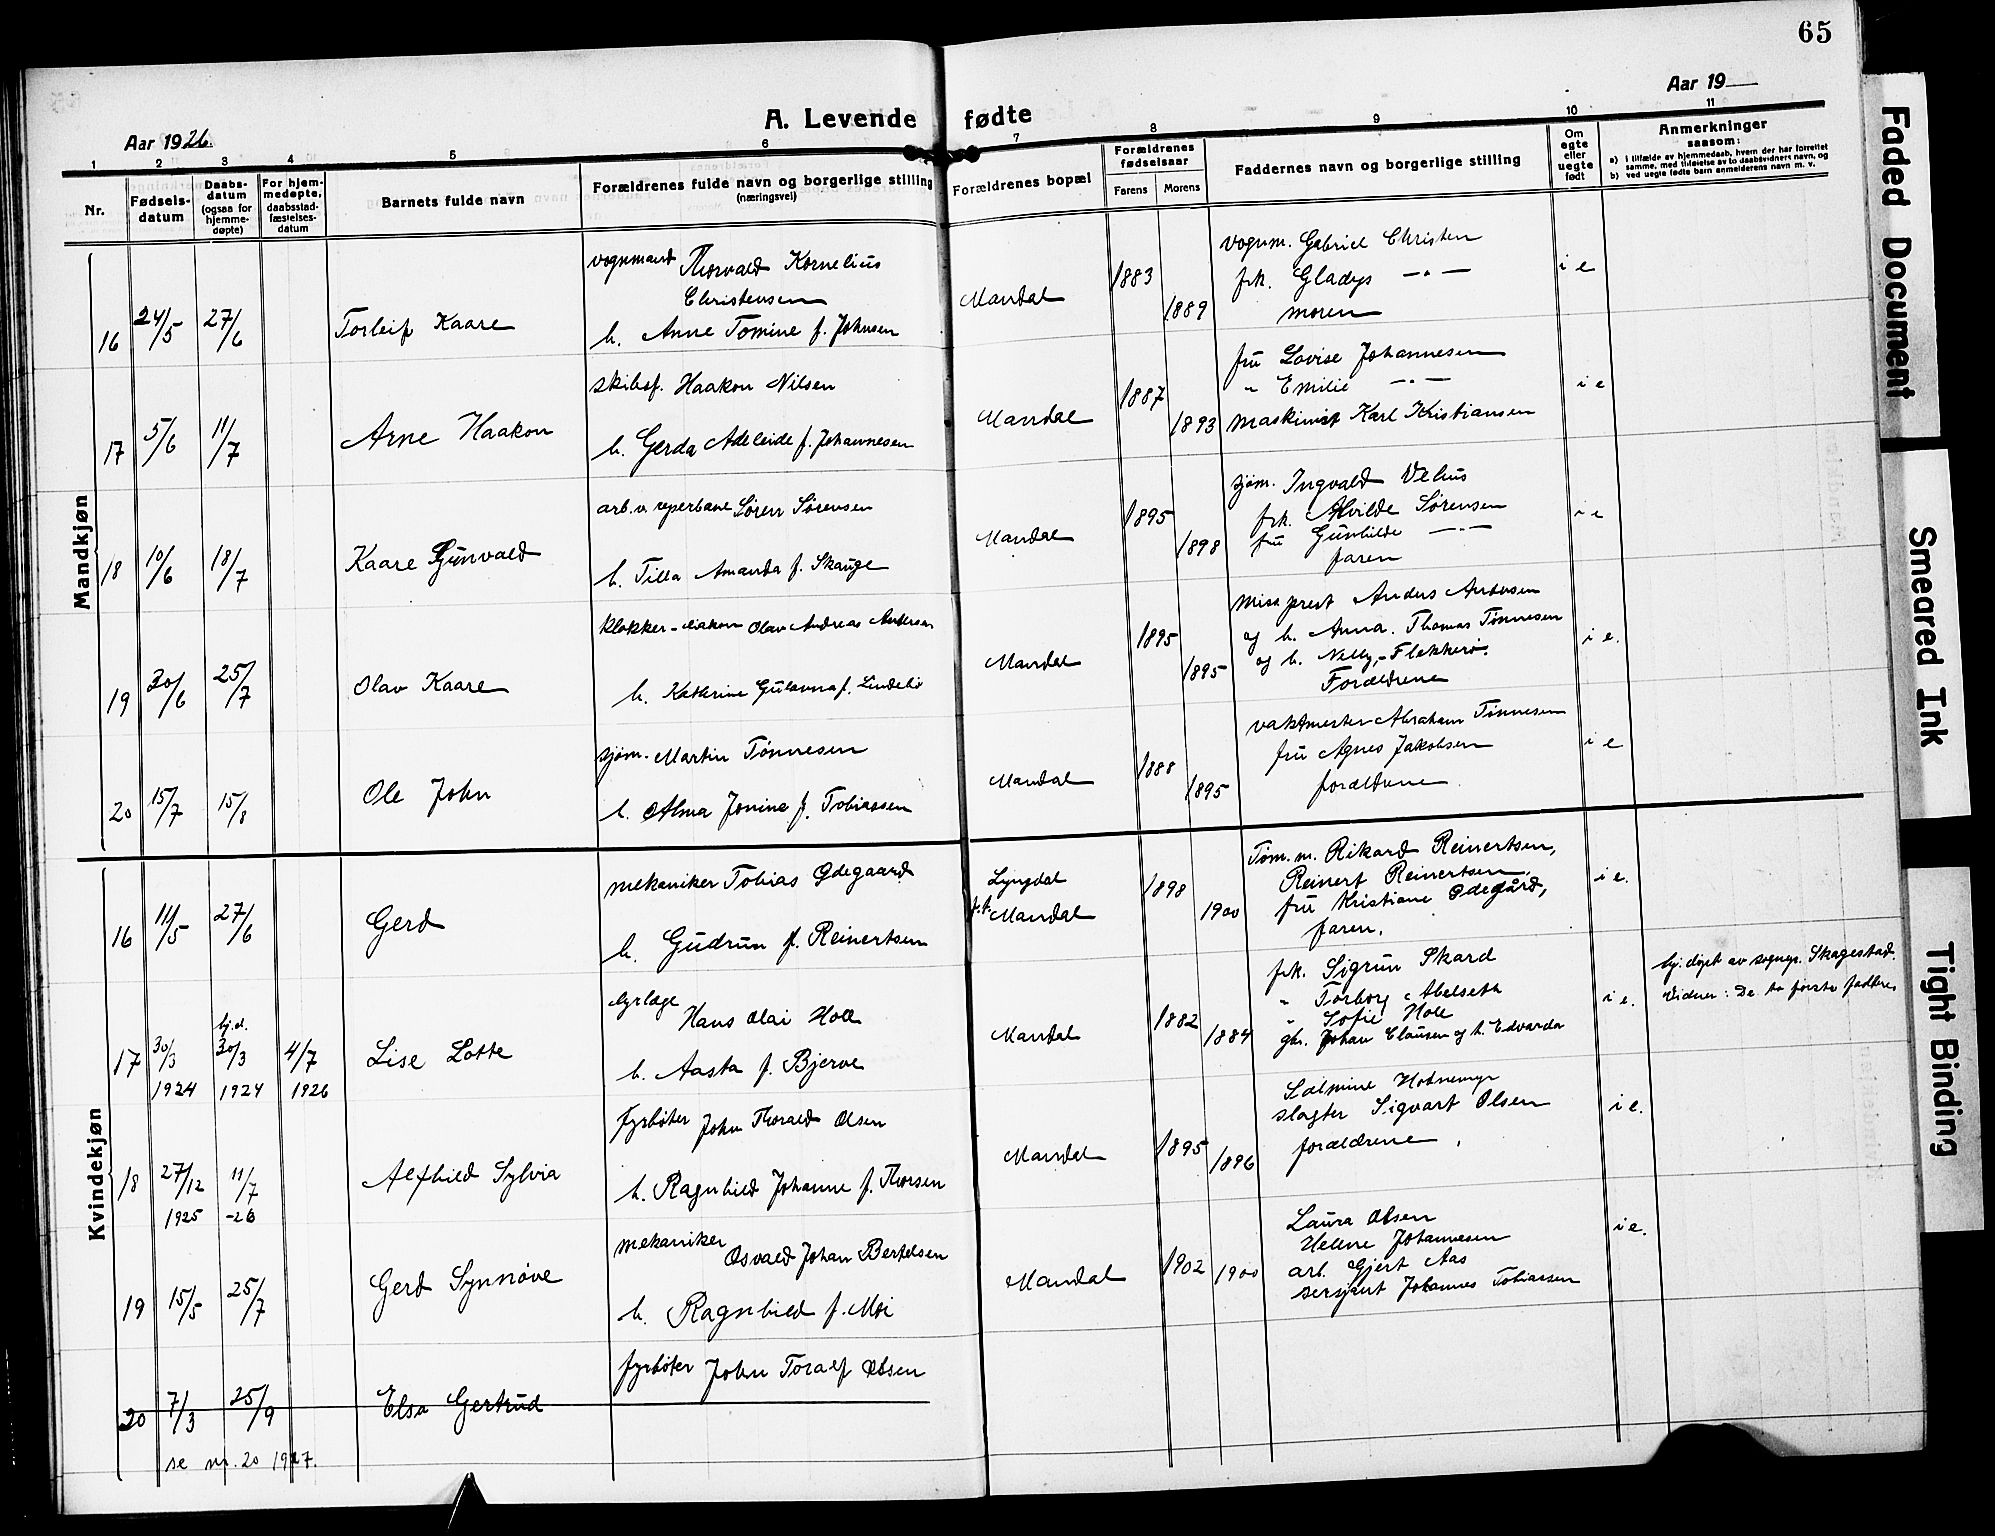 65
Aar 1926.
A. Levende fødte
Aar 19
1 2 3 4 5 6 7 8 9 10 11
Nr.
Fødsels-
datum
Daabs-
datum
(ogsaa for
hjemme-
døpte)
For hjem-
medøpte,
daabsstad-
fæstelses-
datum
Barnets fulde navn
Forældrenes fulde navn og borgerlige stilling
(næringsvei)
Forældrenes bopæl
Forældrenes
fødselsaar
Farens Morens
Faddernes navn og borgerlige stilling
Om
egte
eller
uegte
født
Anmerkninger
saasom:
a) i tilfælde av hjemmedaab, hvem der har forrettet
samme, med tilføielse av to daabsvidners navn, og
b) ved uegte fødte barn anmelderens navn m. v.
Mandkjøn
16 24/5 27/6 Torleif Kaare
vognmand Thorvald Kornelius
Christensen
h. Anne Tomine f. Johnsen
Mandal 1883 1889
vognm. Gabriel Christen
frk. Gladys -"-
moren
i e
17 5/6 11/7 Arne Haakon
skibsf. Haakon Nilsen
h. Gerda Adeleide f. Johannesen
Mandal 1887 1893
fru Lovise Johannesen
" Emilie -"-
maskinist Karl Kristiansen
i e
18 10/6 18/7 Kaare Gunvald
arb. v. reperbane Søren Sørensen
h. Tilla Amanda f. Skauge
Mandal 1895 1898
sjøm. Ingvald Velius
frk. Alvilde Sørensen
fru Gunhilde -"-
faren
i e
19 30/6 25/7 Olav Kaare
klokker-diakon Olav Andreas Andersen
h. Kathrine f. Lindebø
Mandal 1895 1895
miss prest Anders Andersen
og h. Anna. Thomas Tønnesen
og h. Nelly,- Flekkerø.
Forældrene
i e.
20 15/7 15/8 Ole John
sjøm. Martin Tønnesen
h. Alma Jonine f. Tobiassen
Mandal 1888 1895
vaktmester Abraham Tønnesen
fru Agnes Jakobsen
forældrene
i e
Kvindekjøn
16 11/5 27/6 Gerd
mekaniker Tobias Ødegaard
h. Gudrun f. Reinertsen
Lyngdal
f.t. Mandal
1898 1900
Tøm.m. Rikard Reinertsen,
Reinert Reinertsen
fru Kristiane Ødegård,
faren.
i e.
17 30/3 1924 hj.d. 30/3 1924 4/7 1926 Lise Lotte
dyrlæge
Hans Olai Holl
h. Aasta f. Bjerve
Mandal 1882 1884
frk. Sigrun Skard
" Torborg Abelseth
" Sofie Holl
gbr. Johan Clausen og h. Edvarda
i e.
hj. døpt av sogepr. Skagestad.
Vidner: De to første faddere
18 27/12 1925 11/7 -26 Alfhild Sylvia
fyrbøter John Thorald Olsen
h. Ragnhild Johanne f. Thorsen
Mandal 1895 1896
Salmine Holmemyr
slagter Sigvart Olsen
forældrene.
i e.
19 15/5 25/7 Gerd Synnøve
mekaniker
Osvald Johan Bertelsen
h. Ragnhild f. Moi
Mandal 1902 1900
Laura Olsen
Helene Johannesen
arb. Gjert Aas
sersjant Johannes Tobiassen
i e.
20 7/3 25/9 Elsa Gertrud
fyrbøter John Toralf Olsen
se nr. 20 1927.
Faded Document
Smeared Ink
Tight Binding